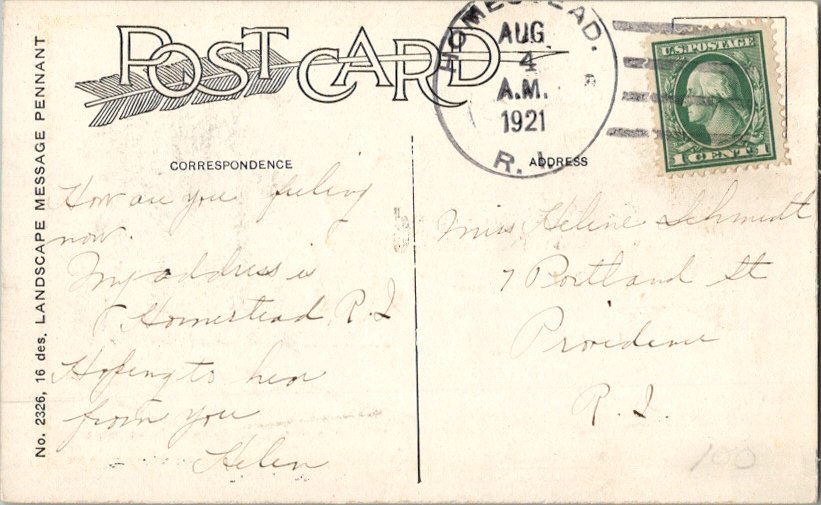 POST CARD
HOMESTEAD.
AUG
4
A.M.
1921
R.I.
U.S. POSTAGE
1 CENT 1
CORRESPONDENCE
ADDRESS
No. 2326, 16 des. LANDSCAPE MESSAGE PENNANT
How are you feeling
now.
My address is
Homestead R.I
Hoping to hear
from you
Helen
Miss Helene Schmidt
7 Portland St
Providence
R.I.
100